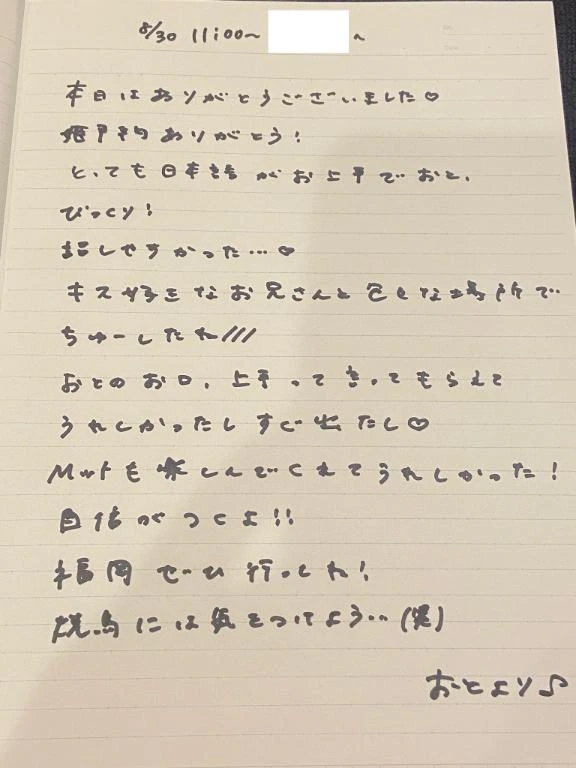 8/30 11:00〜 へ
本日はありがとうございました♡
姫予約ありがとう！
とっても日本語がお上手でおと、
びっくり！
話しやすかった…♡
キス好きなお兄さんと色んな場所で
ちゅーしたね///
おとのお口、上手って言ってもらえて
うれしかったし すぐ出たし♡
Mットも楽しんでくれてうれしかった！
自信がつくよ!!
福岡ぜひ行ってね！
焼鳥には気をつけよう…(笑)
おーとより♪